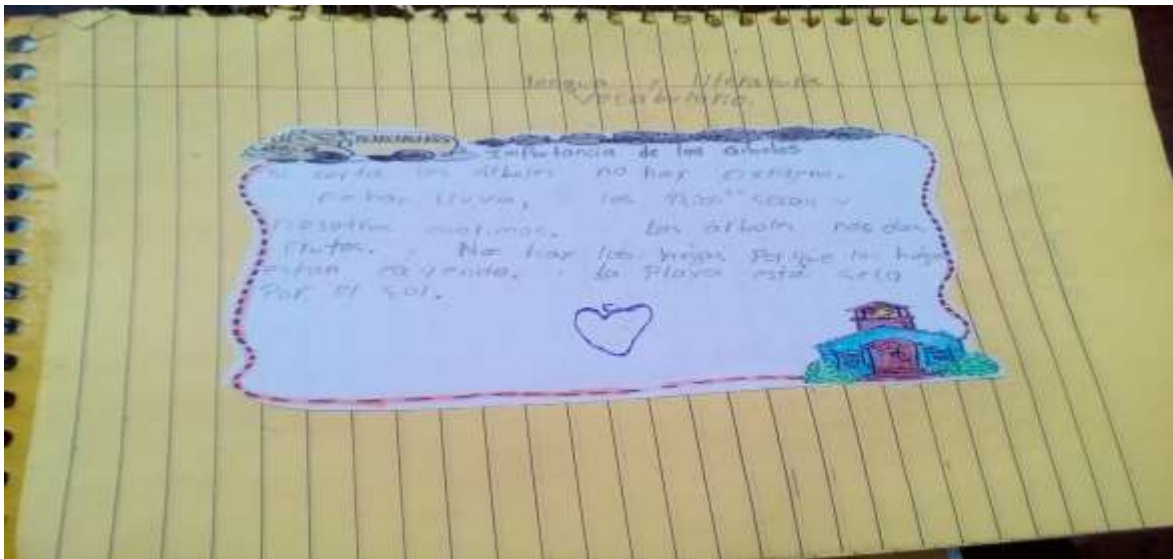 lengua y literatura
Vocabulario.
Importancia de los árboles
corta los árboles no hay
no hay lluvia, los secan y
nosotros morimos. Los árboles nos dan
frutos. No hay las hojas Porque las hojas
estan cayendo, la Playa está seca
Por el sol.